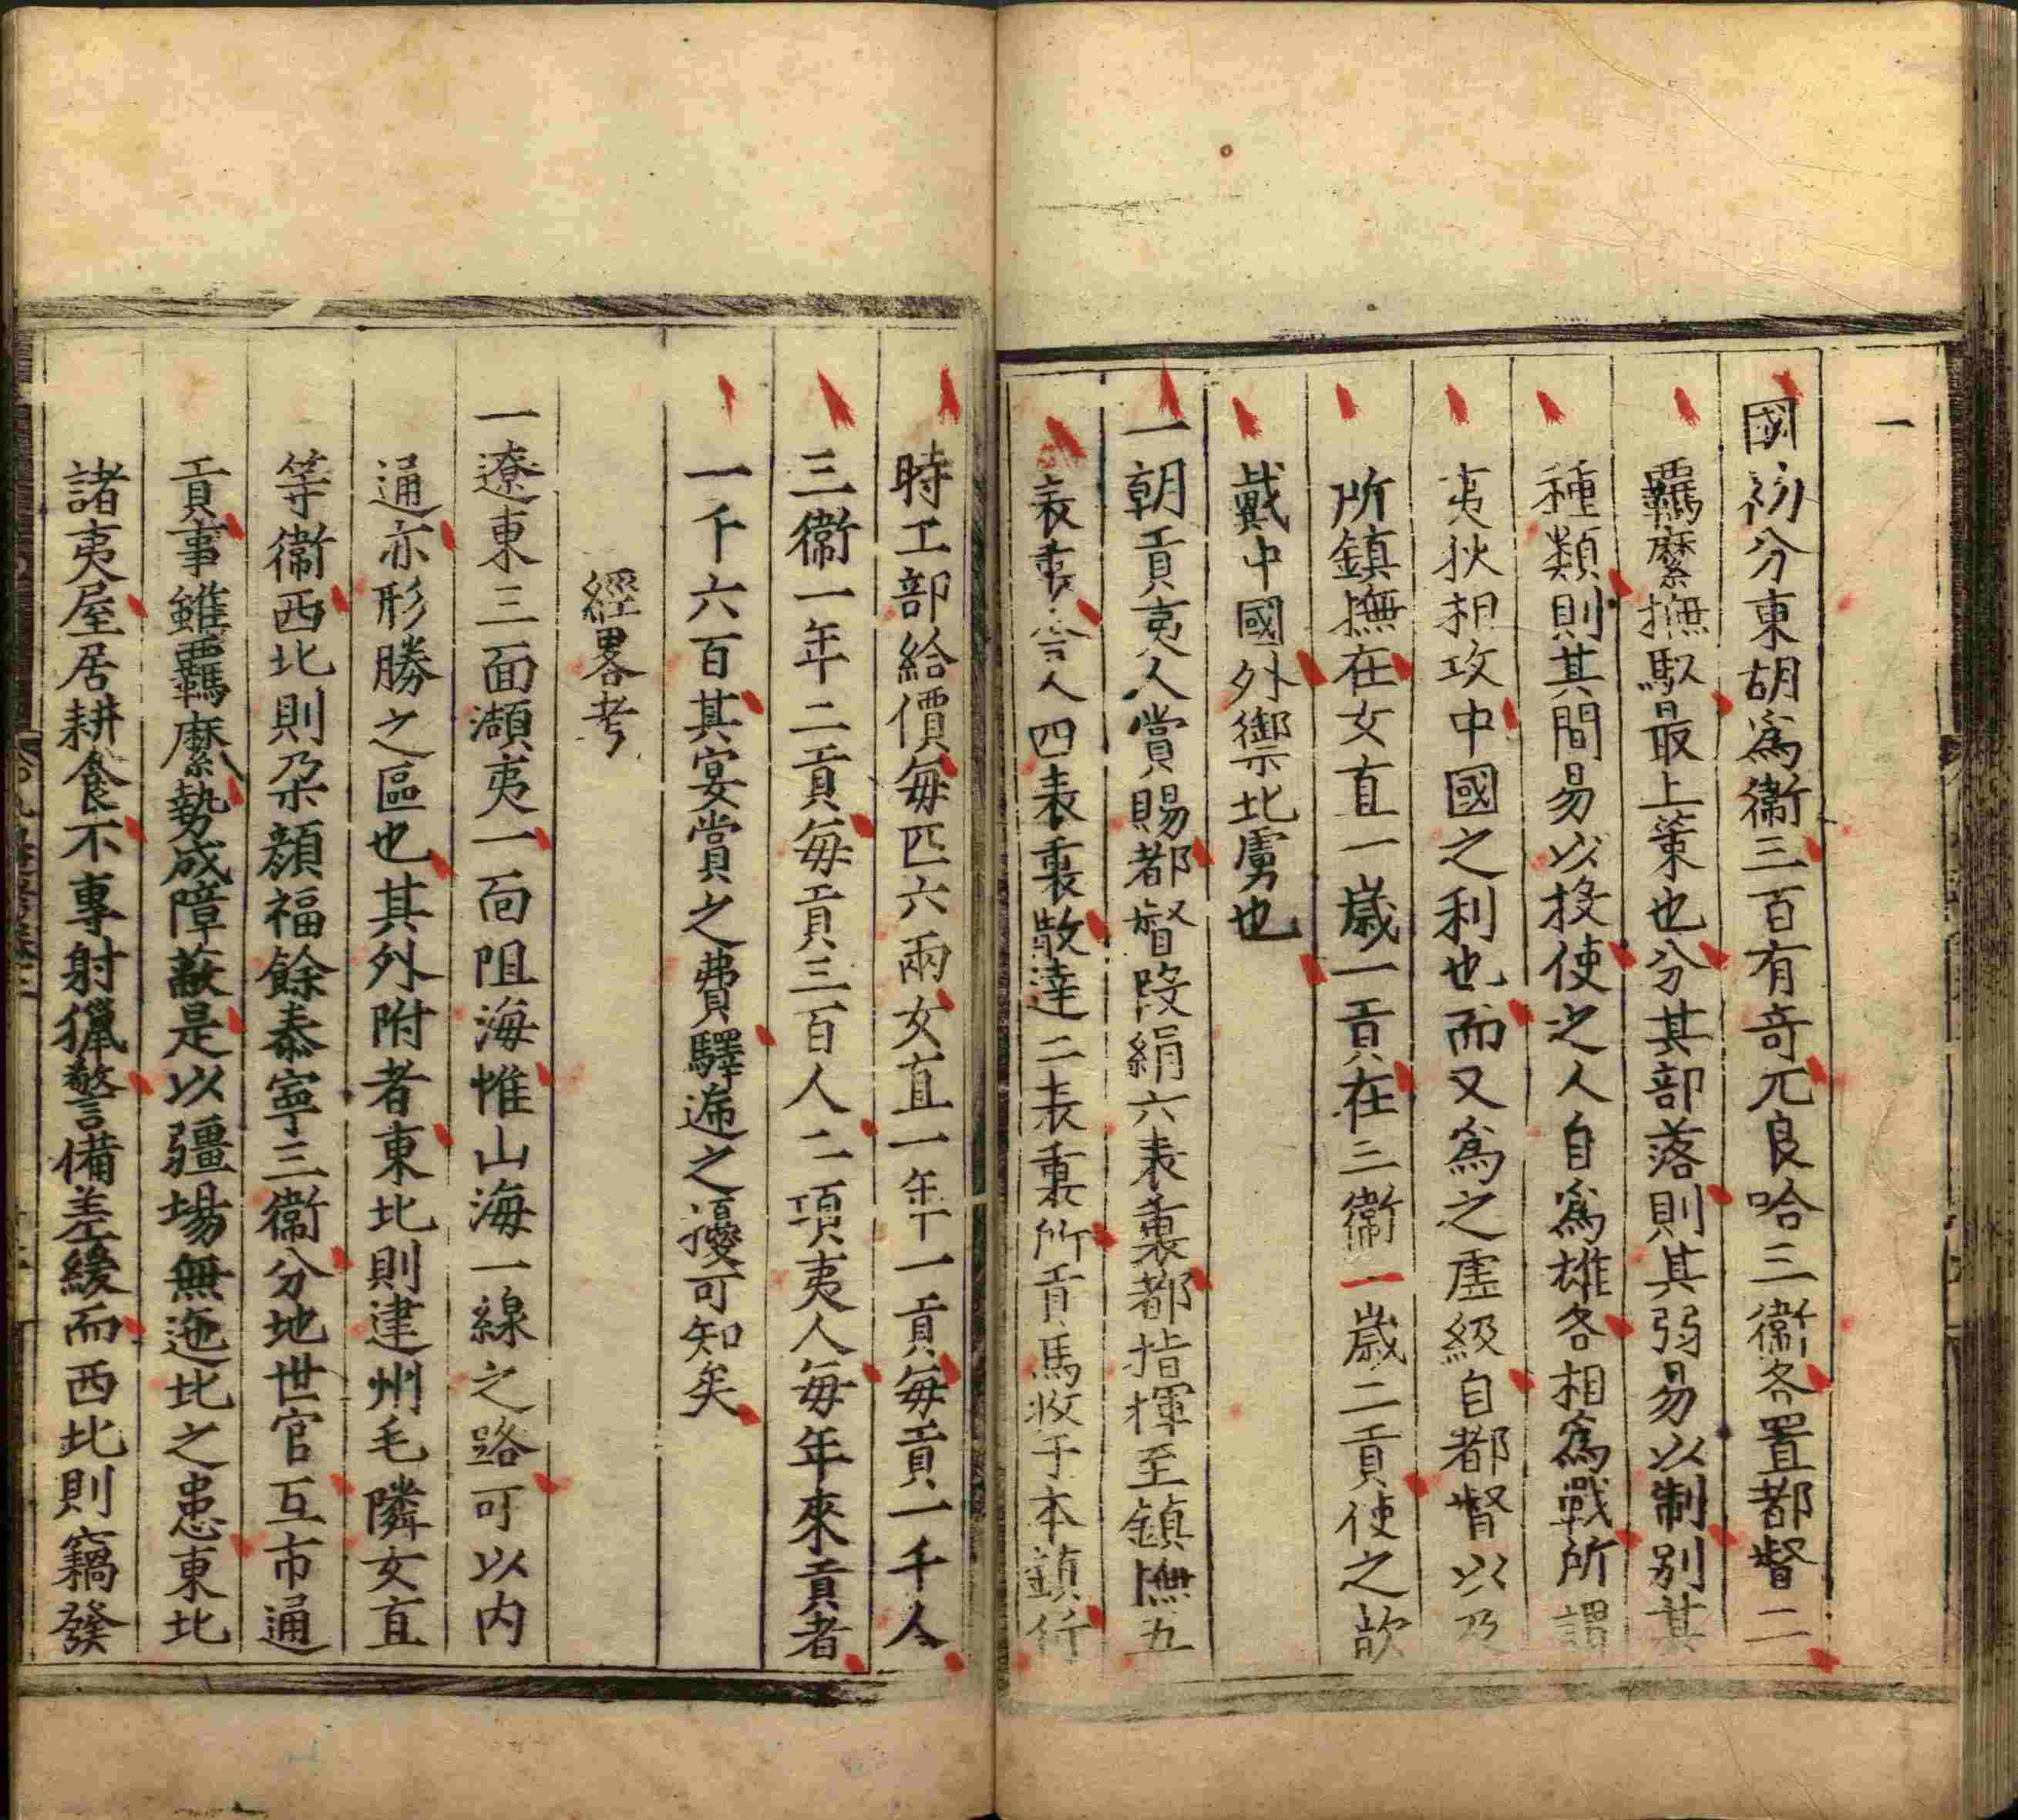 一
國初分東胡爲衞三百有奇兀良哈三衞各置都督二
羈縻撫馭最上策也分其部落則其弱易以制别其
種類則其間易以投使之人自爲雄各相爲戰所謂
夷狄相攻中國之利也而又爲之虛級自都督以乃
所鎮撫在女直一歲一貢在三衞一歲二貢使之歆
戴中國外禦北虜也
一朝貢夷人賞賜都督段絹六表裏都指揮至鎮撫五
表裏舍人四表裏散達二表裏所貢馬收于本鎮行
時工部給價每匹六兩女直一年一貢每貢一千人
三衞一年二貢每貢三百人二項夷人每年來貢者
一千六百其宴賞之費驛遞之擾可知矣
經畧考
一遼東三面瀕夷一面阻海惟山海一線之路可以内
通亦形勝之區也其外附者東北則建州毛隣女直
等衞西北則朶顔福餘泰寧三衞分地世官互市通
貢事雖羈縻勢成障蔽是以疆場無迤北之患東北
諸夷屋居耕食不專射獵警備差緩而西北則竊發